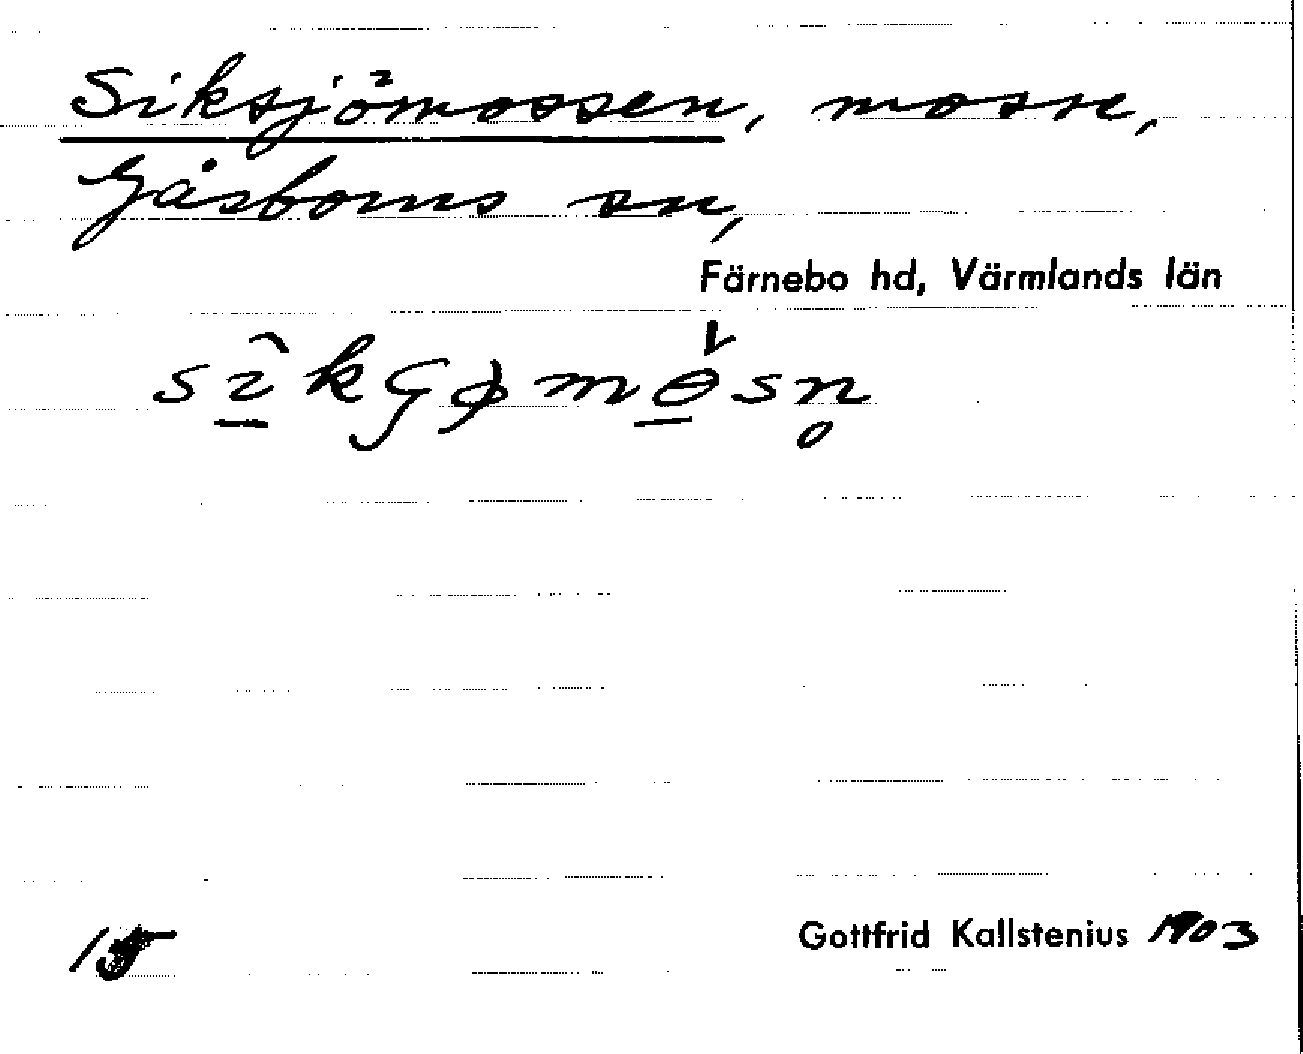 Siksjömossen, mosse,
Gåsborns sn,
Färnebo hd, Värmlands län
Gottfrid Kallstenius 1903